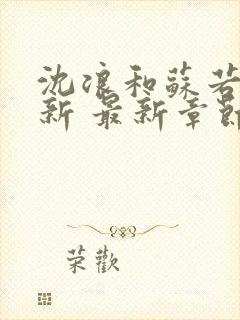 沈浪和蘇若
新 最新章節
荣歡